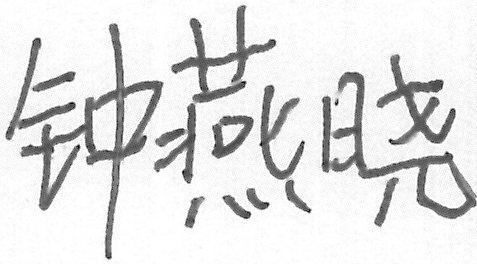 钟燕晓